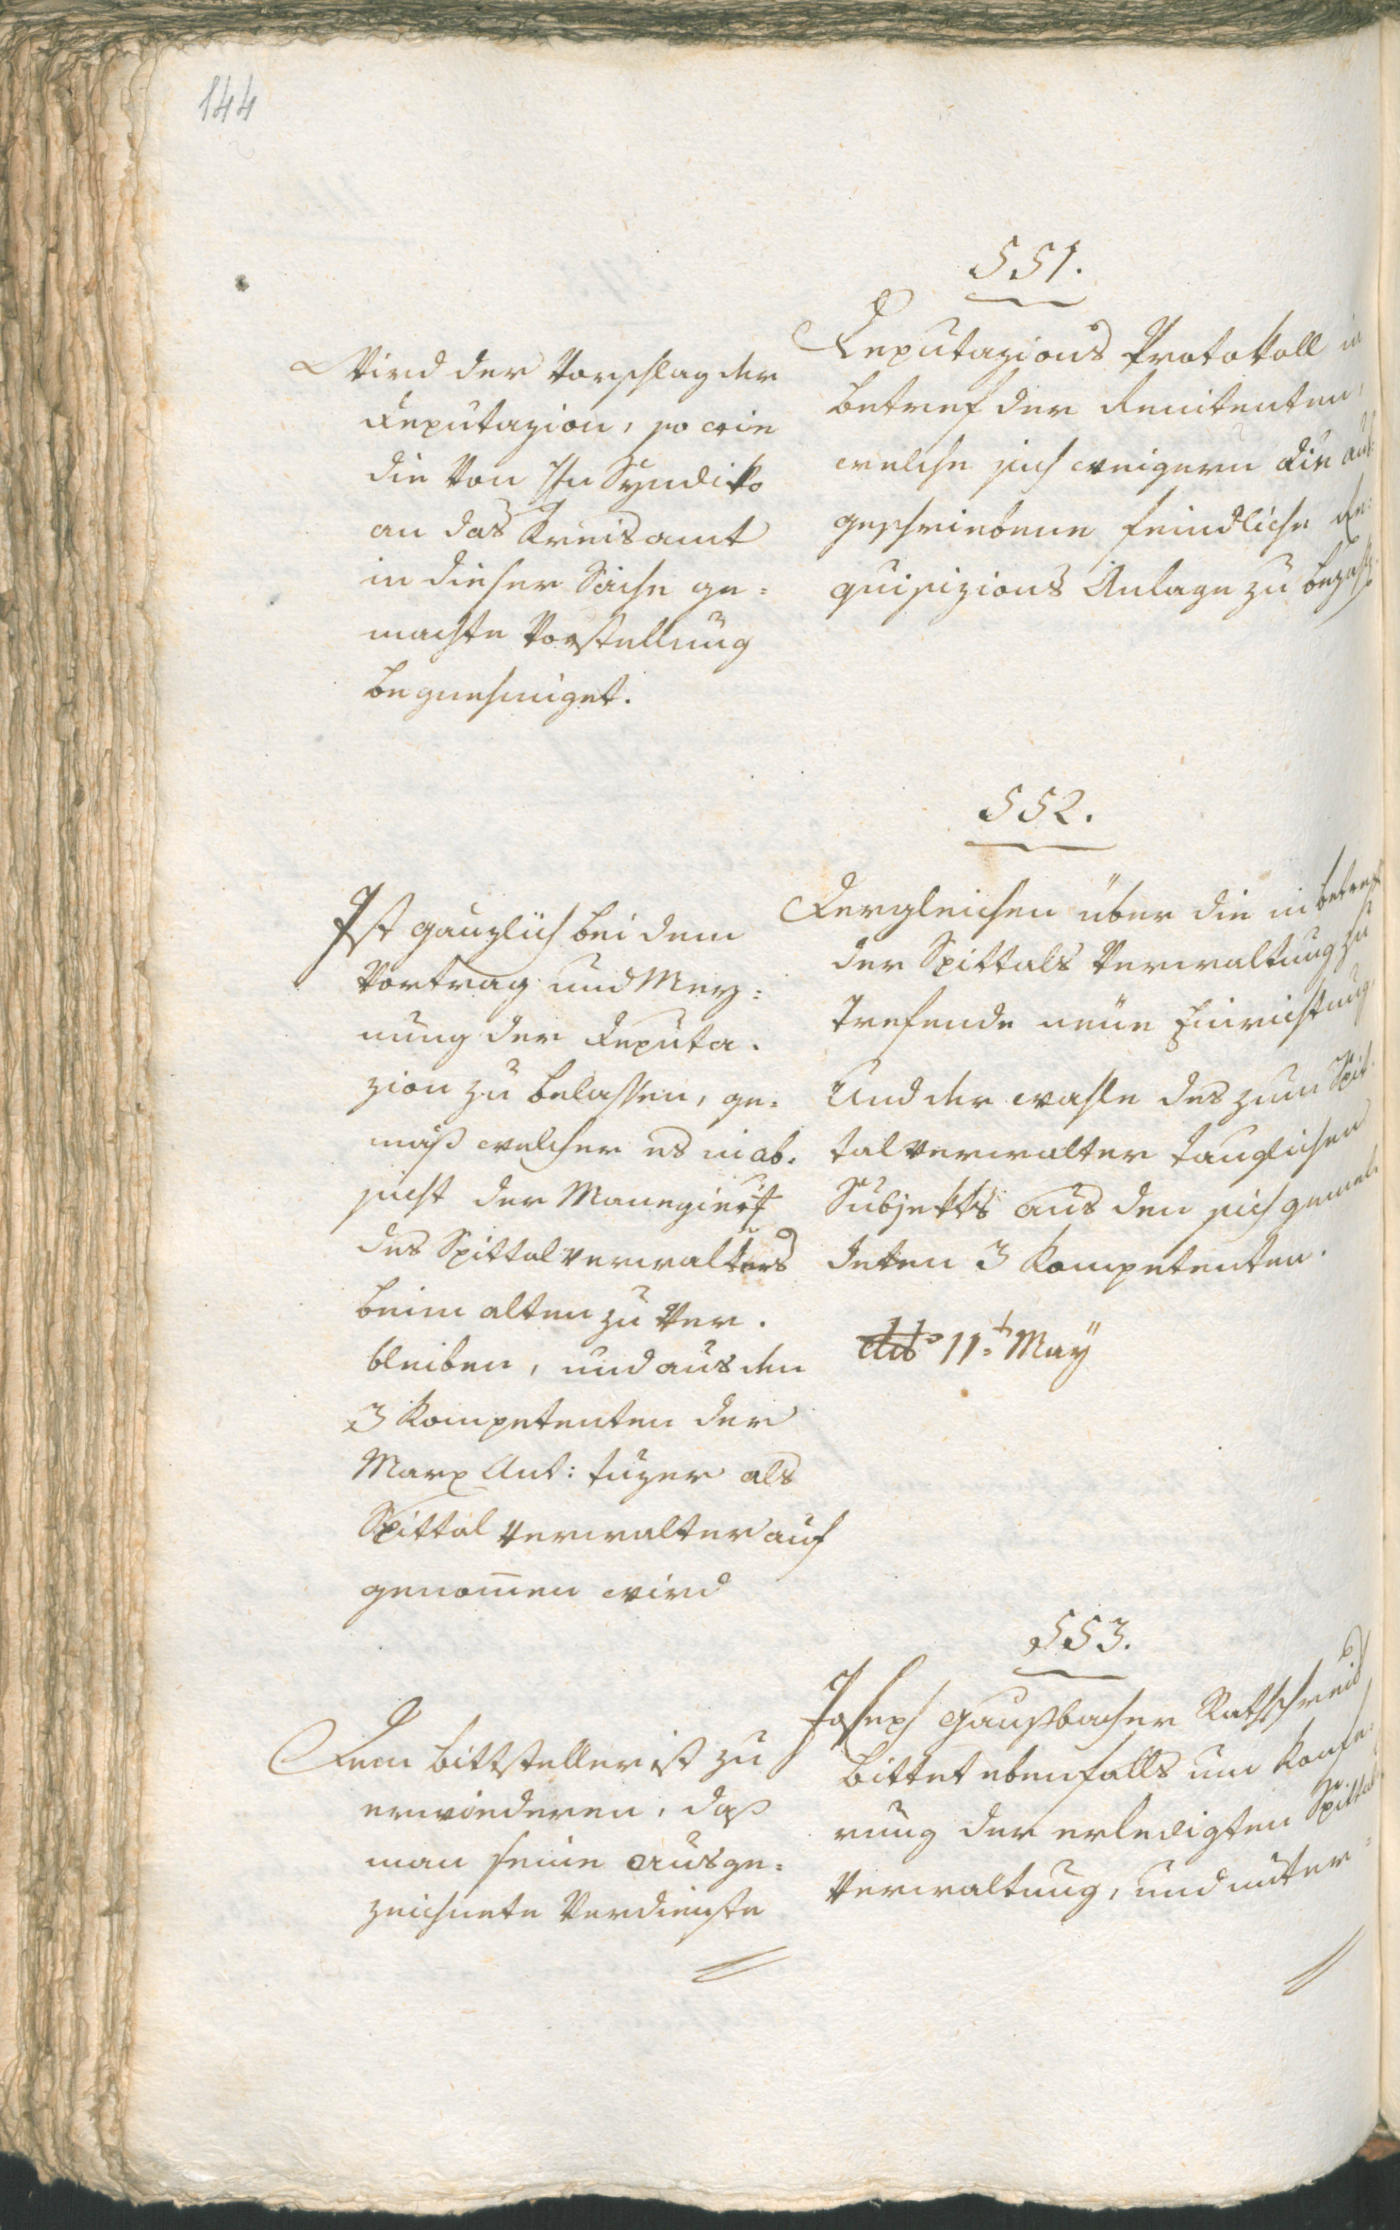 144
551.
Deputazions Protokoll in
betref der Renitenten,
welche sich weigern die aus¬
geschriebene feindliche Re¬
quisizions Anlage zu bezahlen
Wird der Vorschlag der
Deputazion, so wie
die von Hr. Syndiko
an das Kreisamt
in dieser Sache ge¬
machte Vorstellung
begnehmiget.
552.
Dergleichen über die in betref
der Spittals Verwaltung zu
trefende neue Einrichtung,
Und der wahle des zum Spit¬
talverwalter tauglichen
Subjekts aus den sich gemel¬
deten 3 Kompetenten.
dto 11t. May
Ist gänzlich bei dem
Vortrag und Mey¬
nung der Deputa¬
zion zu belassen, ge¬
mäß welcher es in ab¬
sicht der
des Spittalverwalters
beim alten zu ver¬
bleiben, und aus den
3 Kompetenten der
Marx Ant: Tuzer als
Spittalverwalter auf
genommen wird
553.
Joseph Gaußbacher Rathschreib
bittet ebenfalls um Konfe¬
rung der erledigten Spittal
Verwaltung, und unter¬
Dem Bittsteller ist zu
erwiederen, daß
man seine ausge¬
zeichnete Verdienste